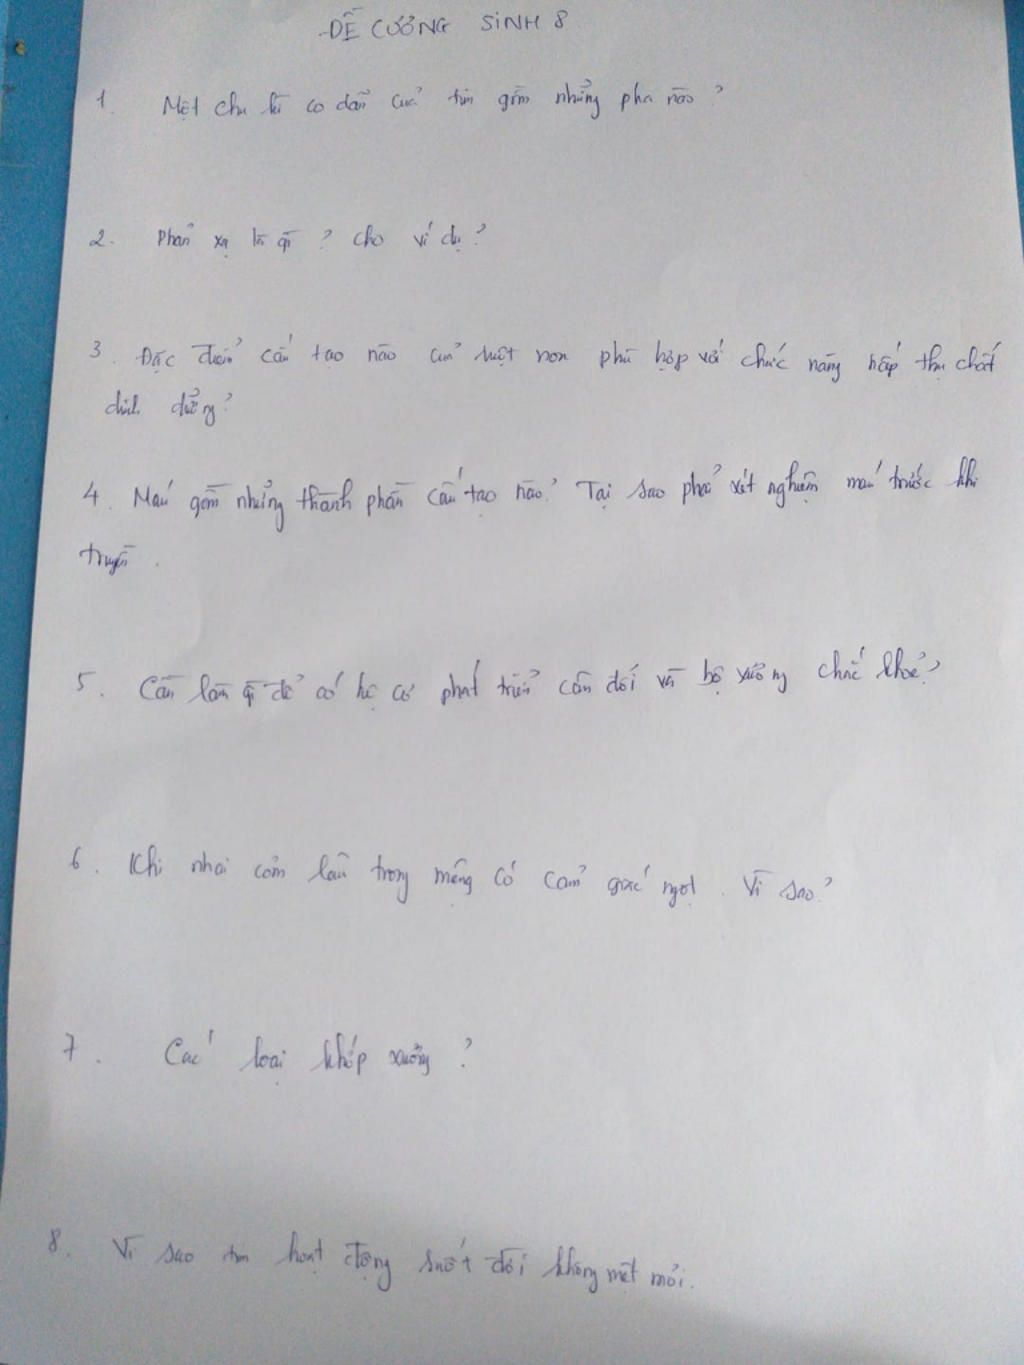 ĐỀ CƯƠNG SINH 8
1. Một chu kì co dãn của tim gồm những pha nào?
2. Phản xạ là gì? cho ví dụ?
3. Đặc điểm cấu tạo nào của ruột non phù hợp với chức năng hấp thu chất
dinh dưỡng?
4. Máu gồm những thành phần cấu tạo nào? Tại sao phải xét nghiệm máu trước khi
truyền.
5. Cần làm gì để có hệ cơ phát triển cân đối và bộ xương chắc khoẻ?
6. Khi nhai cơm lâu trong miệng có cảm giác ngọt. Vì sao?
7. Các loại khớp xương?
8. Vì sao tim hoạt động suốt đời không mệt mỏi.